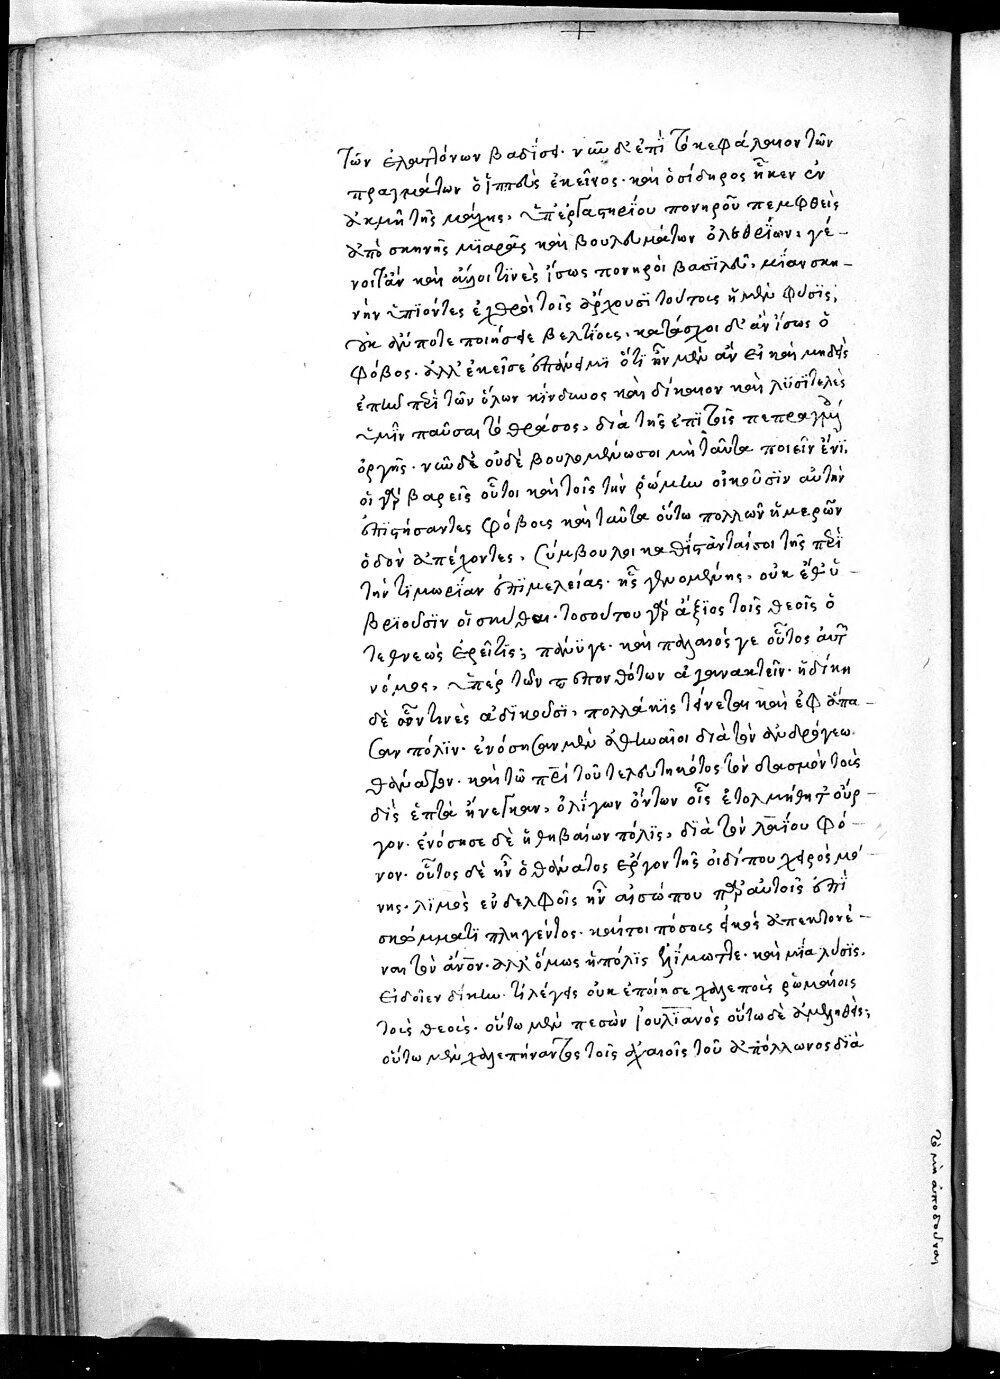 τῶν ἐλαττόνων βαδίσει. νῦν δ' ἐπὶ τὸ κεφάλαιον τῶν
πραγμάτων ὁ ἱππεὺς ἐκεῖνος. καὶ ὁ σίδηρος ἧκεν ἐν
ἀκμῇ τῆς μάχης, ὑπ' ἐργαστηρίου πονηροῦ πεμφθεὶς
ἀπὸ σκηνῆς μιαρᾶς καὶ βουλευμάτων ὀλεθρίων. γέ-
νοιτ' ἂν καὶ ἄλλοι τινὲς ἴσως πονηροὶ βασιλεῦ, μίαν σκη-
νὴν ὑπιόντες ἐχθροὶ τοῖς ἄρχουσι τούτοις ἡ μὲν φύσις,
οὐκ ἄν ποτε ποιήσειε βελτίους. κατάσχοι δ' ἂν ἴσως ὁ
φόβος. ἀλλ' ἐκεῖσε ἐπάνειμι ὅτι ἦν μὲν ἂν εἰ καὶ μηδεὶς
ἐπῆν περὶ τῶν ὅλων κίνδυνος καὶ δίκαιον καὶ λυσιτελὲς
ὑμῖν παῦσαι τὸ θράσος, διὰ τῆς ἐπὶ τοῖς πεπραγμ
ὀργῆς. νῦν δὲ οὐδὲ βουλομένοισι μὴ ταῦτα ποιεῖν ἔνι.
οἱ γὰρ βαρεῖς οὗτοι καὶ τοῖς τὴν ῥώμην οἰκοῦσιν αὐτὴν
ἐπιστήσαντες φόβοις καὶ ταῦτα οὕτω πολλῶν ἡμερῶν
ὁδὸν ἀπέχοντες, σύμβουλοι καθίστανταί σοι τῆς περὶ
τὴν τιμωρίαν ἐπιμελείας. ἧς γενομένης, οὐκ ἔθ' ὑ-
βριοῦσιν οἱ σκύθαι. τοσούτου γὰρ ἄξιος τοῖς θεοῖς ὁ
τεθνεὼς ἐρεῖ τις; πάνυ γε. καὶ παλαιός γε οὗτος αὐτ
νόμος, ὑπὲρ τῶν πεπονθότων ἀγανακτεῖν. ἡ δίκη
δὲ ὧν τινὲς ἀδικοῦσι, πολλάκις τείνεται καὶ ἐφ' ἅπα-
σαν πόλιν. ἐνόσησαν μὲν ἀθηναῖοι διὰ τὸν ἀνδρόγεω
θάνατον. καὶ τῷ περὶ τοῦ τελευτηκότος τὸν δασμὸν τοῖς
δὶς ἑπτὰ ἤνεγκαν, ὀλίγων ὄντων οἷς ἐτολμήθη τὸ ἔρ-
γον. ἐνόσησε δὲ ἡ θηβαίων πόλις, διὰ τὸν λαΐου φό-
νον. οὗτος δὲ ἦν ὁ θάνατος ἔργον τῆς οἰδίπου χειρὸς μό-
νης. λιμὸς ἐν δελφοῖς ἦν αἰσώπου παρ' αὐτοῖς ἐπὶ
σκώμματι πληγέντος. καίτοι πόσους εἰκὸς ἀπεκτονέ-
ναι τὸν ἄνον. ἀλλ' ὅμως ἡ πόλις ἐλίμωττε. καὶ μία λύσις,
εἰ δοῖεν δίκην. τί λέγεις οὐκ ἐποίησε χαλεποὺς ῥωμαίοις
τοὺς θεοὺς. οὕτω μὲν πεσὼν ἰουλιανὸς οὕτω δὲ ἀμεληθείς;
οὕτω μὲν χαλεπήναντος τοῖς ἀχαιοῖς τοῦ ἀπόλλωνος διὰ
τὸ μὴ ἀποδοῦναι